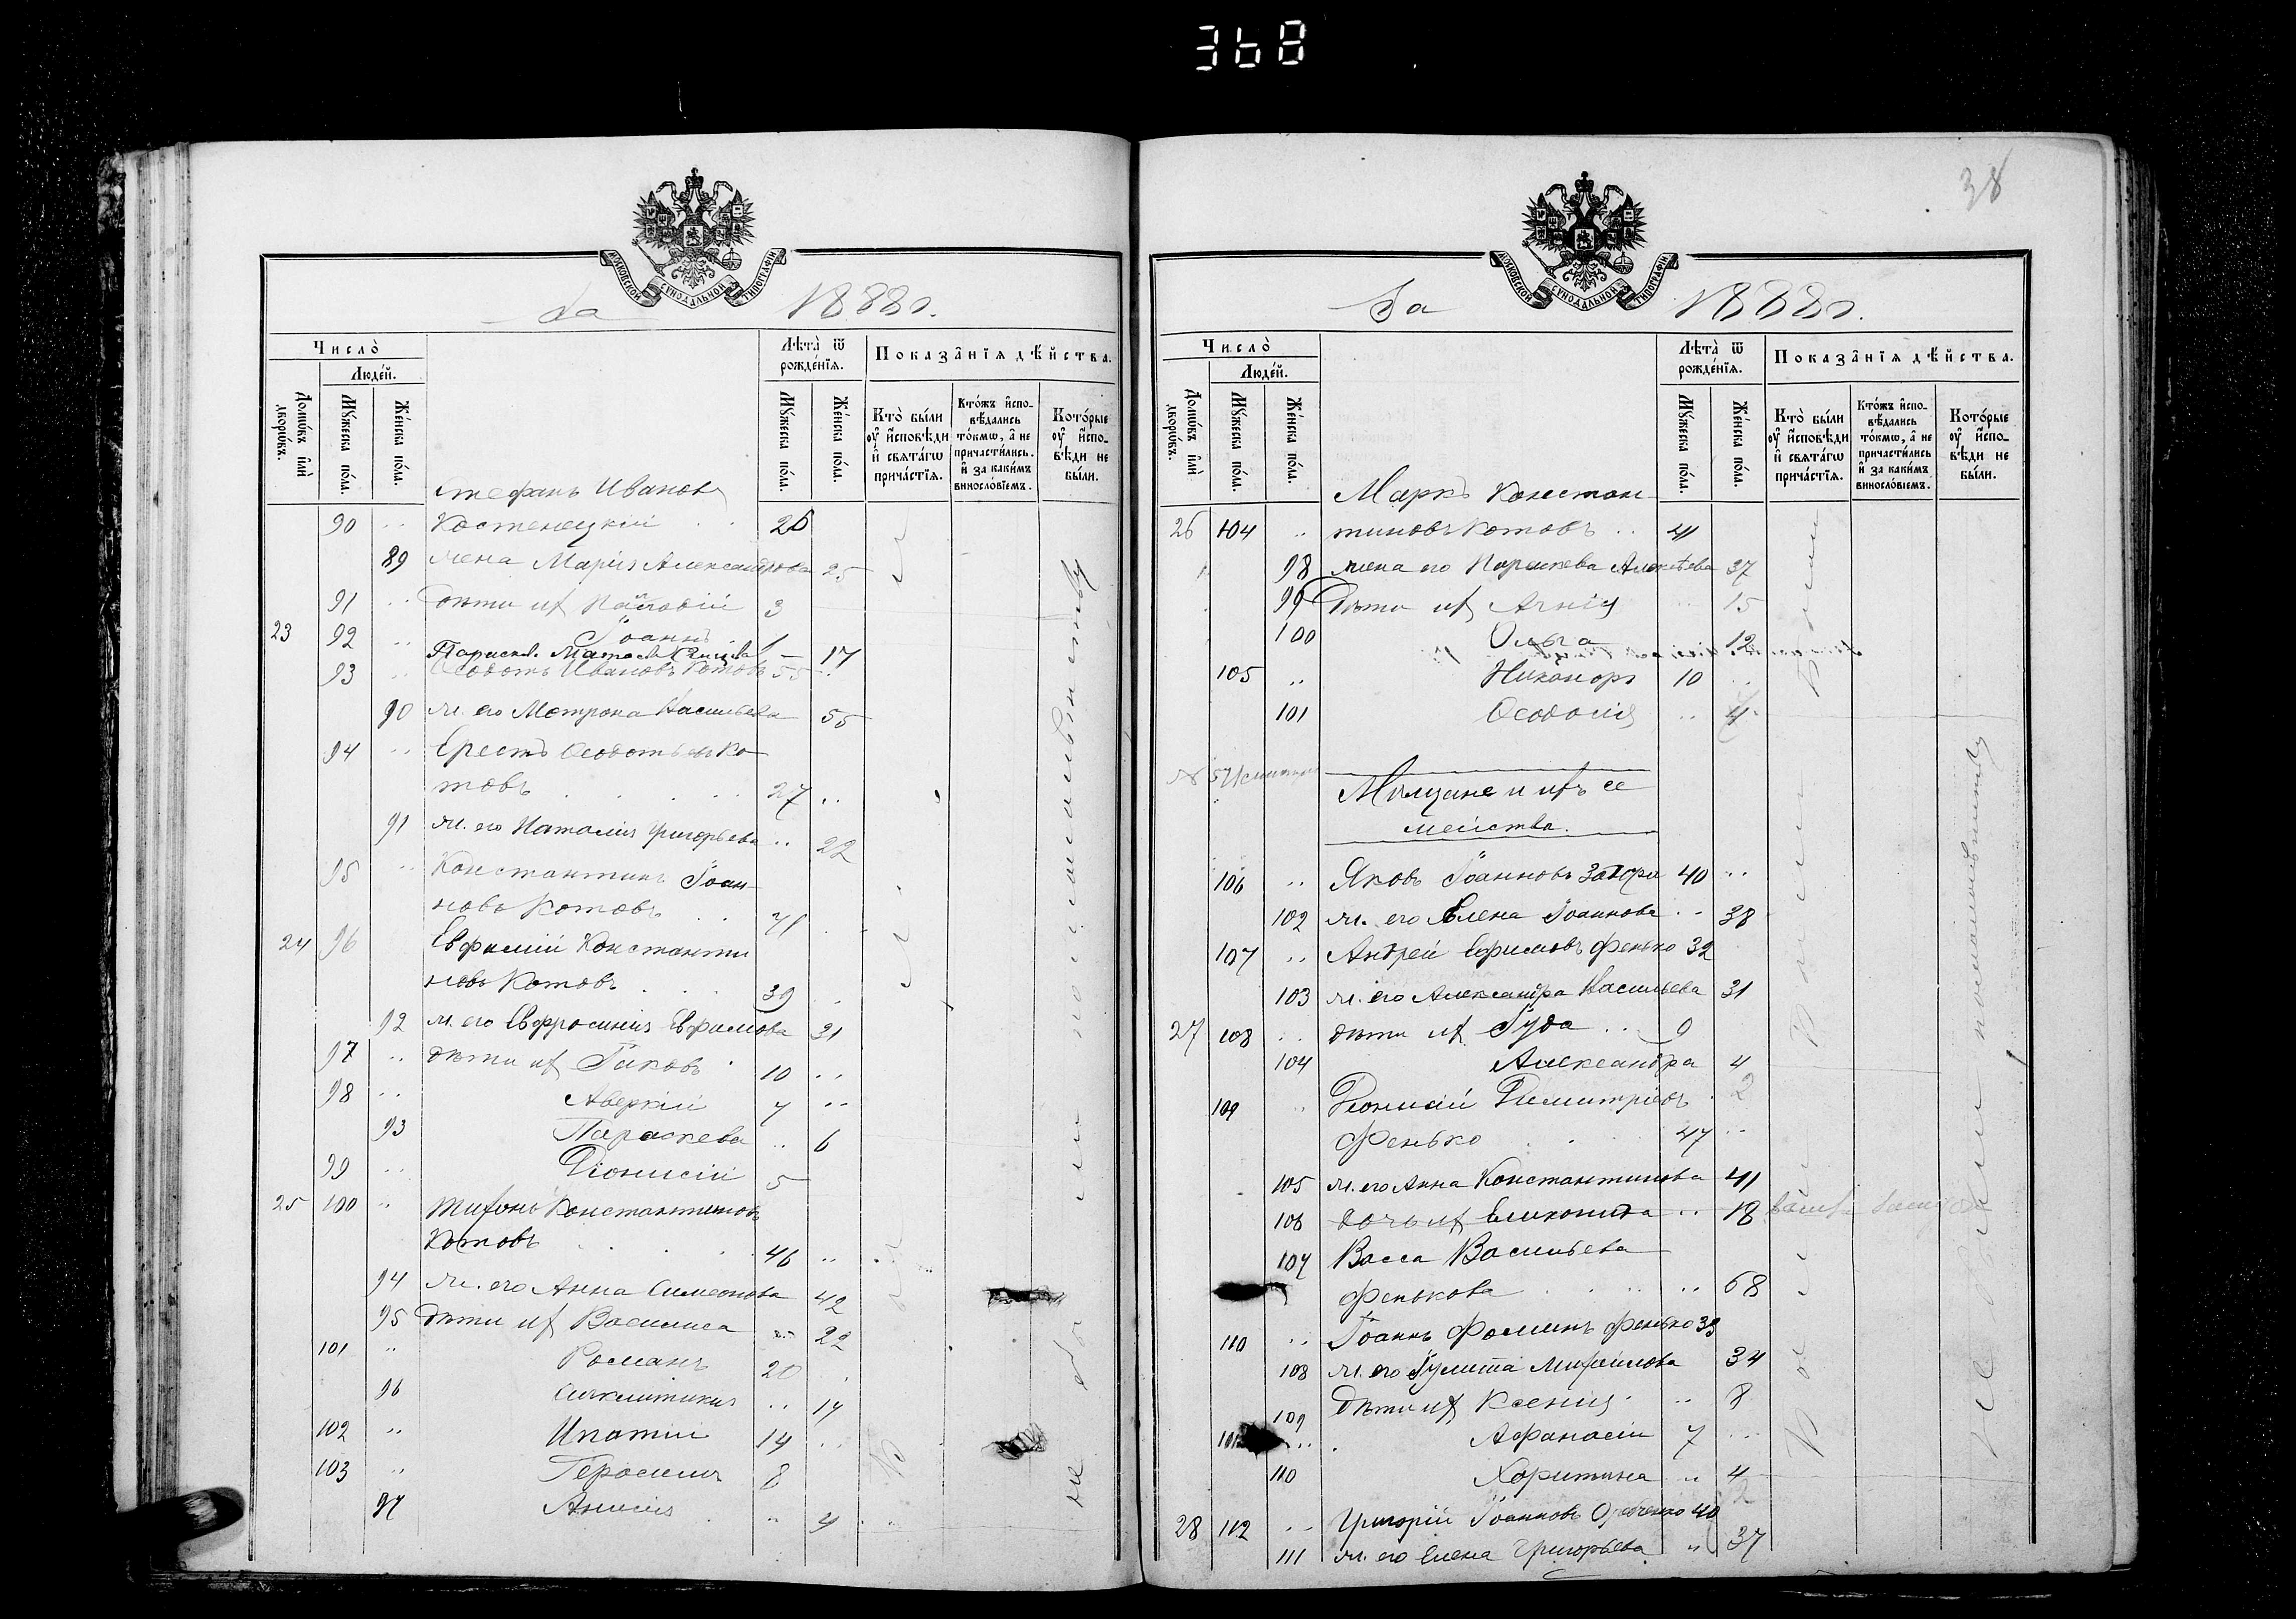 368
МОСКОВСКОЙ СѴНОДАЛЬНОЙ ТИПОГРАФІИ
За 1888 г.
Число̀
Люде́й.
Домѡ́въ и҆лѝ дворѡ́въ.
Мꙋ́жеска по́ла.
Же́нска по́ла.
Лѣ́та ѿ рожде́нїѧ.
Мꙋ́жеска по́ла.
Же́нска по́ла.
Показа̂нїѧ дѣ́йства.
Кто̀ бы́ли ᲂу҆ и҆сповѣ́ди и҆ свѧта́гѡ прича́стїѧ.
Кто́жъ и҆сповѣ́дались то́кмѡ, а҆ не причасти́лись. и҆ за каки́мъ виносло́вїемъ.
Кото́рые ᲂу҆ и҆сповѣ́ди не бы́ли.
Стефанъ Ивановъ
90 " Костенецкій 26
89 жена Марія Александрова 25
91 " дѣти их 3
23 92 " Іоаннъ 1
17
93 " Ѳеодотъ Ивановъ Котовъ 55 "
90 ж. его Матрона Васильева 55
94 " Ерестъ Ѳеодотьевъ Ко
товъ 27 "
91 ж. его Наталія Григорьева " 22
95 " Константинъ Іоан
новъ Котовъ 71
24 96 Евфимій Константи
новъ Котовъ 39
92 ж. его Евфросинія Ефимова 31
97 " дѣти их Іаковъ 10 "
98 " Аверкій 7 "
93 Параскева " 6
99 " Діонисій 5
25 100 " Тихонъ Константиновъ
Котовъ 46 "
94 ж. его Анна Симеонова 42
95 дѣти их Василиса " 22
101 " Романъ 20
96 Синклитикія " 17
102 " Ипатій 14 "
103 " Герасимъ 8
97 Анисія " 4
не были по
38
МОСКОВСКОЙ СѴНОДАЛЬНОЙ ТИПОГРАФІИ
За 1888 г.
Число̀
Люде́й.
Домѡ́въ и҆лѝ дворѡ́въ.
Мꙋ́жеска по́ла.
Же́нска по́ла.
Лѣ́та ѿ рожде́нїѧ.
Мꙋ́жеска по́ла.
Же́нска по́ла.
Показа̂нїѧ дѣ́йства.
Кто̀ бы́ли ᲂу҆ и҆сповѣ́ди и҆ свѧта́гѡ прича́стїѧ.
Кто́жъ и҆сповѣ́дались то́кмѡ, а҆ не причасти́лись и҆ за каки́мъ виносло́вїемъ.
Кото́рые ᲂу҆ и҆сповѣ́ди не бы́ли.
Маркъ Констан
26 104 " тиновъ Котовъ 41
98 жена его Параскева Алексѣева 37
99 Дѣти их Агнія " 15
100 Ольга 12
105 " Никаноръ 10 "
101 Ѳеодосія " 4
Мѣщане и ихъ се
мейства.
106 " Яковъ Іоанновъ 40 "
102 ж. его Елена Іоаннова " 38
107 " Андрей Ефимовъ Фенько 32
103 ж. его Александра Васильева 31
27 108 " дѣти их Іуда 9
104 Александра 4
109 " Діонисій Димитріевъ 2
Фенько 47 "
105 ж. его Анна Константинова 41
106 дочь их Еликонида " 18
107 Васса Васильева
Фенькова " 68
110 " Іоаннъ Фоминъ Фенько 39
108 ж. его Іулитта Михайлова 34
109 Дѣти их Ксенія " 8
Афанасій 7 "
110 Харитина " 4
28 112 " Григорій Іоанновъ 40
111 ж. его Елена Григорьева " 37
не были